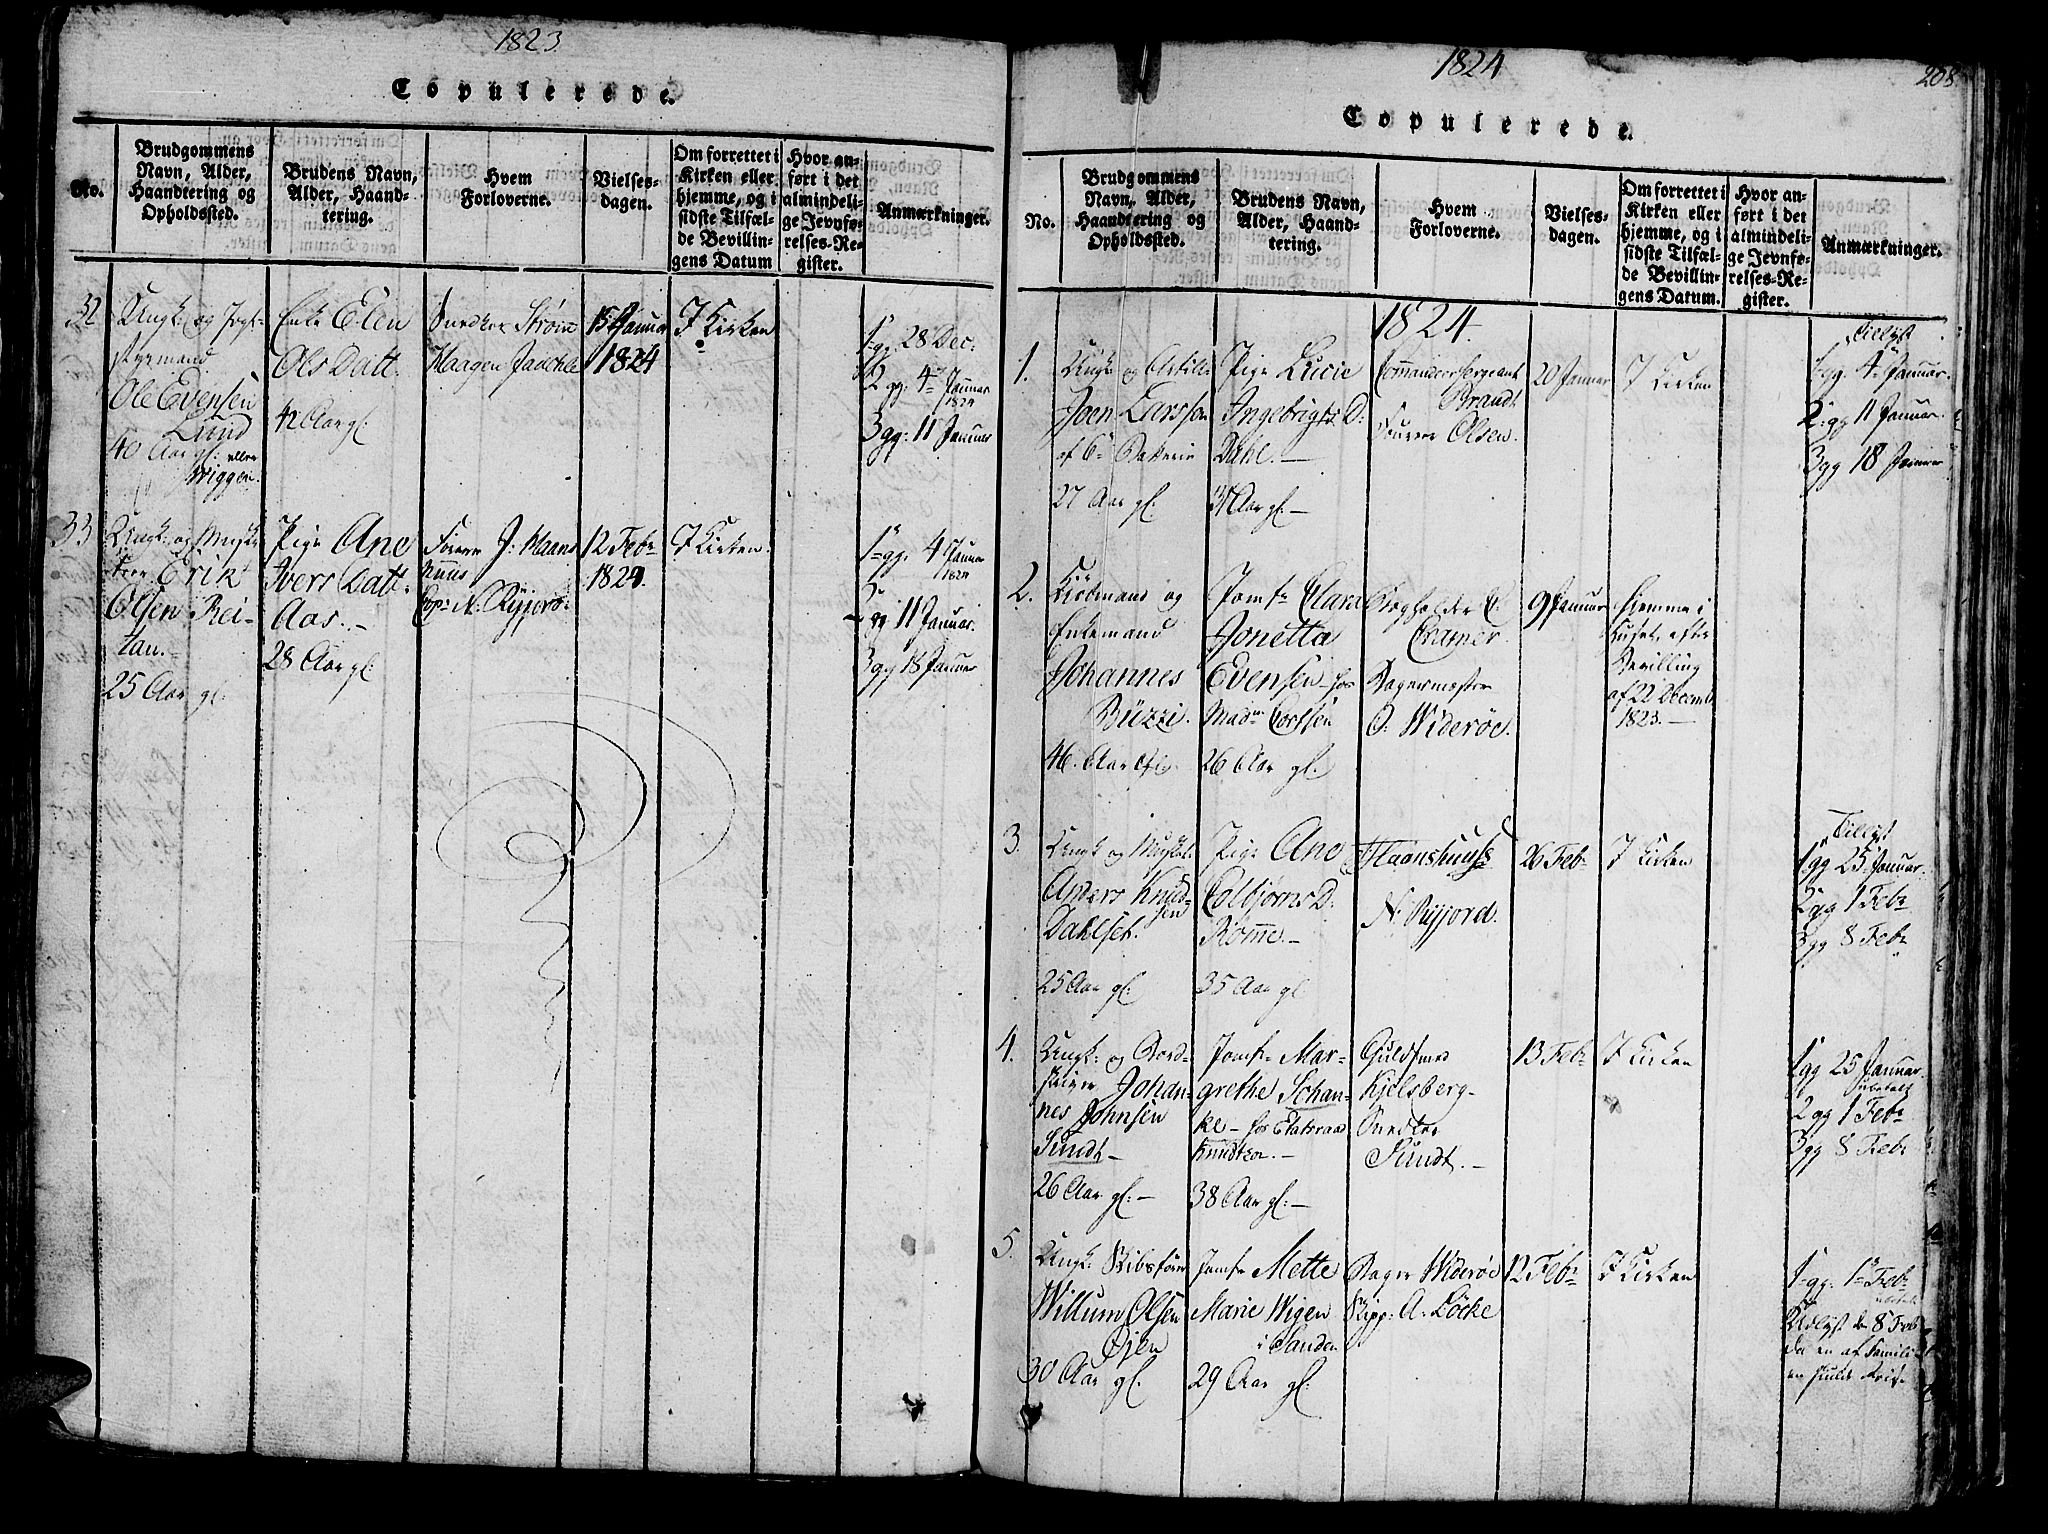 1823
Copulerede.
No.
Brudgommens
Navn, Alder,
Haandtering og
Opholdssted.
Brudens Navn,
Alder, Haand-
tering.
Hvem
Forloverne.
Vielses-
dagen.
Om forrettet i
Kirken eller
hjemme, og i
sidste Tilfæl-
de Bevillin-
gens Datum
Hvor an-
ført i det
almindeli-
ge Jevnfø-
relses-Re-
gister.
Anmærkninger.
32
Ungk: og
styrmand
Ole Evensen
Lund
40 Aar gl: eller
Wiggen.
Enke Elen
Ols Datt.
42 Aar gl:
Snedker Strøm
Haagen
15 Januar
1824
I Kirken
1e gg. 28 Dec:
2 gg: 4e Januar
1824
3 gg: 11 Januar
33
Ungk: og Musk-
Erik
Olsen Rei-
tan.
25 Aar gl:
Pige Ane
Ivers Datt.
Aas. -
28 Aar gl:
J: Haans
huus
N: Ryjord.
12 Febr
1824.
I Kirken.
1e gg. 4 Januar
1824
2 gg 11 Januar.
3 gg 18 Januar
1824
208
Copulerede.
No.
Brudgommens
Navn, Alder,
Haandtering og
Opholdssted.
Brudens Navn,
Alder, Haand-
tering.
Hvem
Forloverne.
Vielses-
dagen.
Om forrettet i
Kirken eller
hjemme, og i
sidste Tilfæl-
de Bevillin-
gens Datum.
Hvor an-
ført i det
almindeli-
ge Jevnfø-
relses-Re-
gister.
Anmærkninger.
1824.
1.
Ungk: og Artill:
Joen Larssen
af 6e Batterie
27 Aar gl.
Pige Lucie
Ingebrigts D:
Dahl. -
31 Aar gl. -
Commandeersergeant
Brandt
Olsen.
20 Januar
I Kirken
Tillyst
1 gg. 4e Januar.
2 gg 11 Januar.
3 gg 18 Januar
2.
Kiøbmand og
Enkemand
Johannes
Büzzi.
46. Aar gl.
Jomfr Clara
Jonetta
Evensen - hos
Madm Cortsen
26 Aar gl.
Bogholder C.
Cramer.
Bagermester
O: Widerøe.
9 Januar
Hjemme i
Huset efter
Bevilling
af 22 Decemb
1823. -
3.
Ungk og Musket.
Anders Knud-
sen
Dahlset.
25 Aar gl:
Pige Ane
Colbjørns D.
Romme. -
35 Aar gl
Haanshuuss
N: Ryjord.
26 Febr
I Kirken
Tillyst
1 gg 25 Januar.
2 gg 1 Febr
3 gg 8 Febr
4.
Ungk: og Bord-
skriver Johan-
nes Johnsen
Sundt -
26 Aar gl: -
Jomfr Mar-
grethe Schan-
ke - hos Etatsraad
Knudtzon. -
38 Aar gl: -
Guldsmed
Kjelsberg -
Snedker
Sundt. -
13 Febr
I Kirken
1 gg 25 Januar.
2 gg 1 Febr
3 gg 8 Febr
5.
Ungk: Skibsfører
Willum Olsen
Øjen
30 Aar gl.
Jomfr Mette
Marie Wigen
i Sanden
29 Aar gl:
Bager Widerøe
Skipp: A. Löcke
12 Febr
I Kirken
1e gg. 1e Febr
Udlyst d 8 Feb
da en af Famili
en